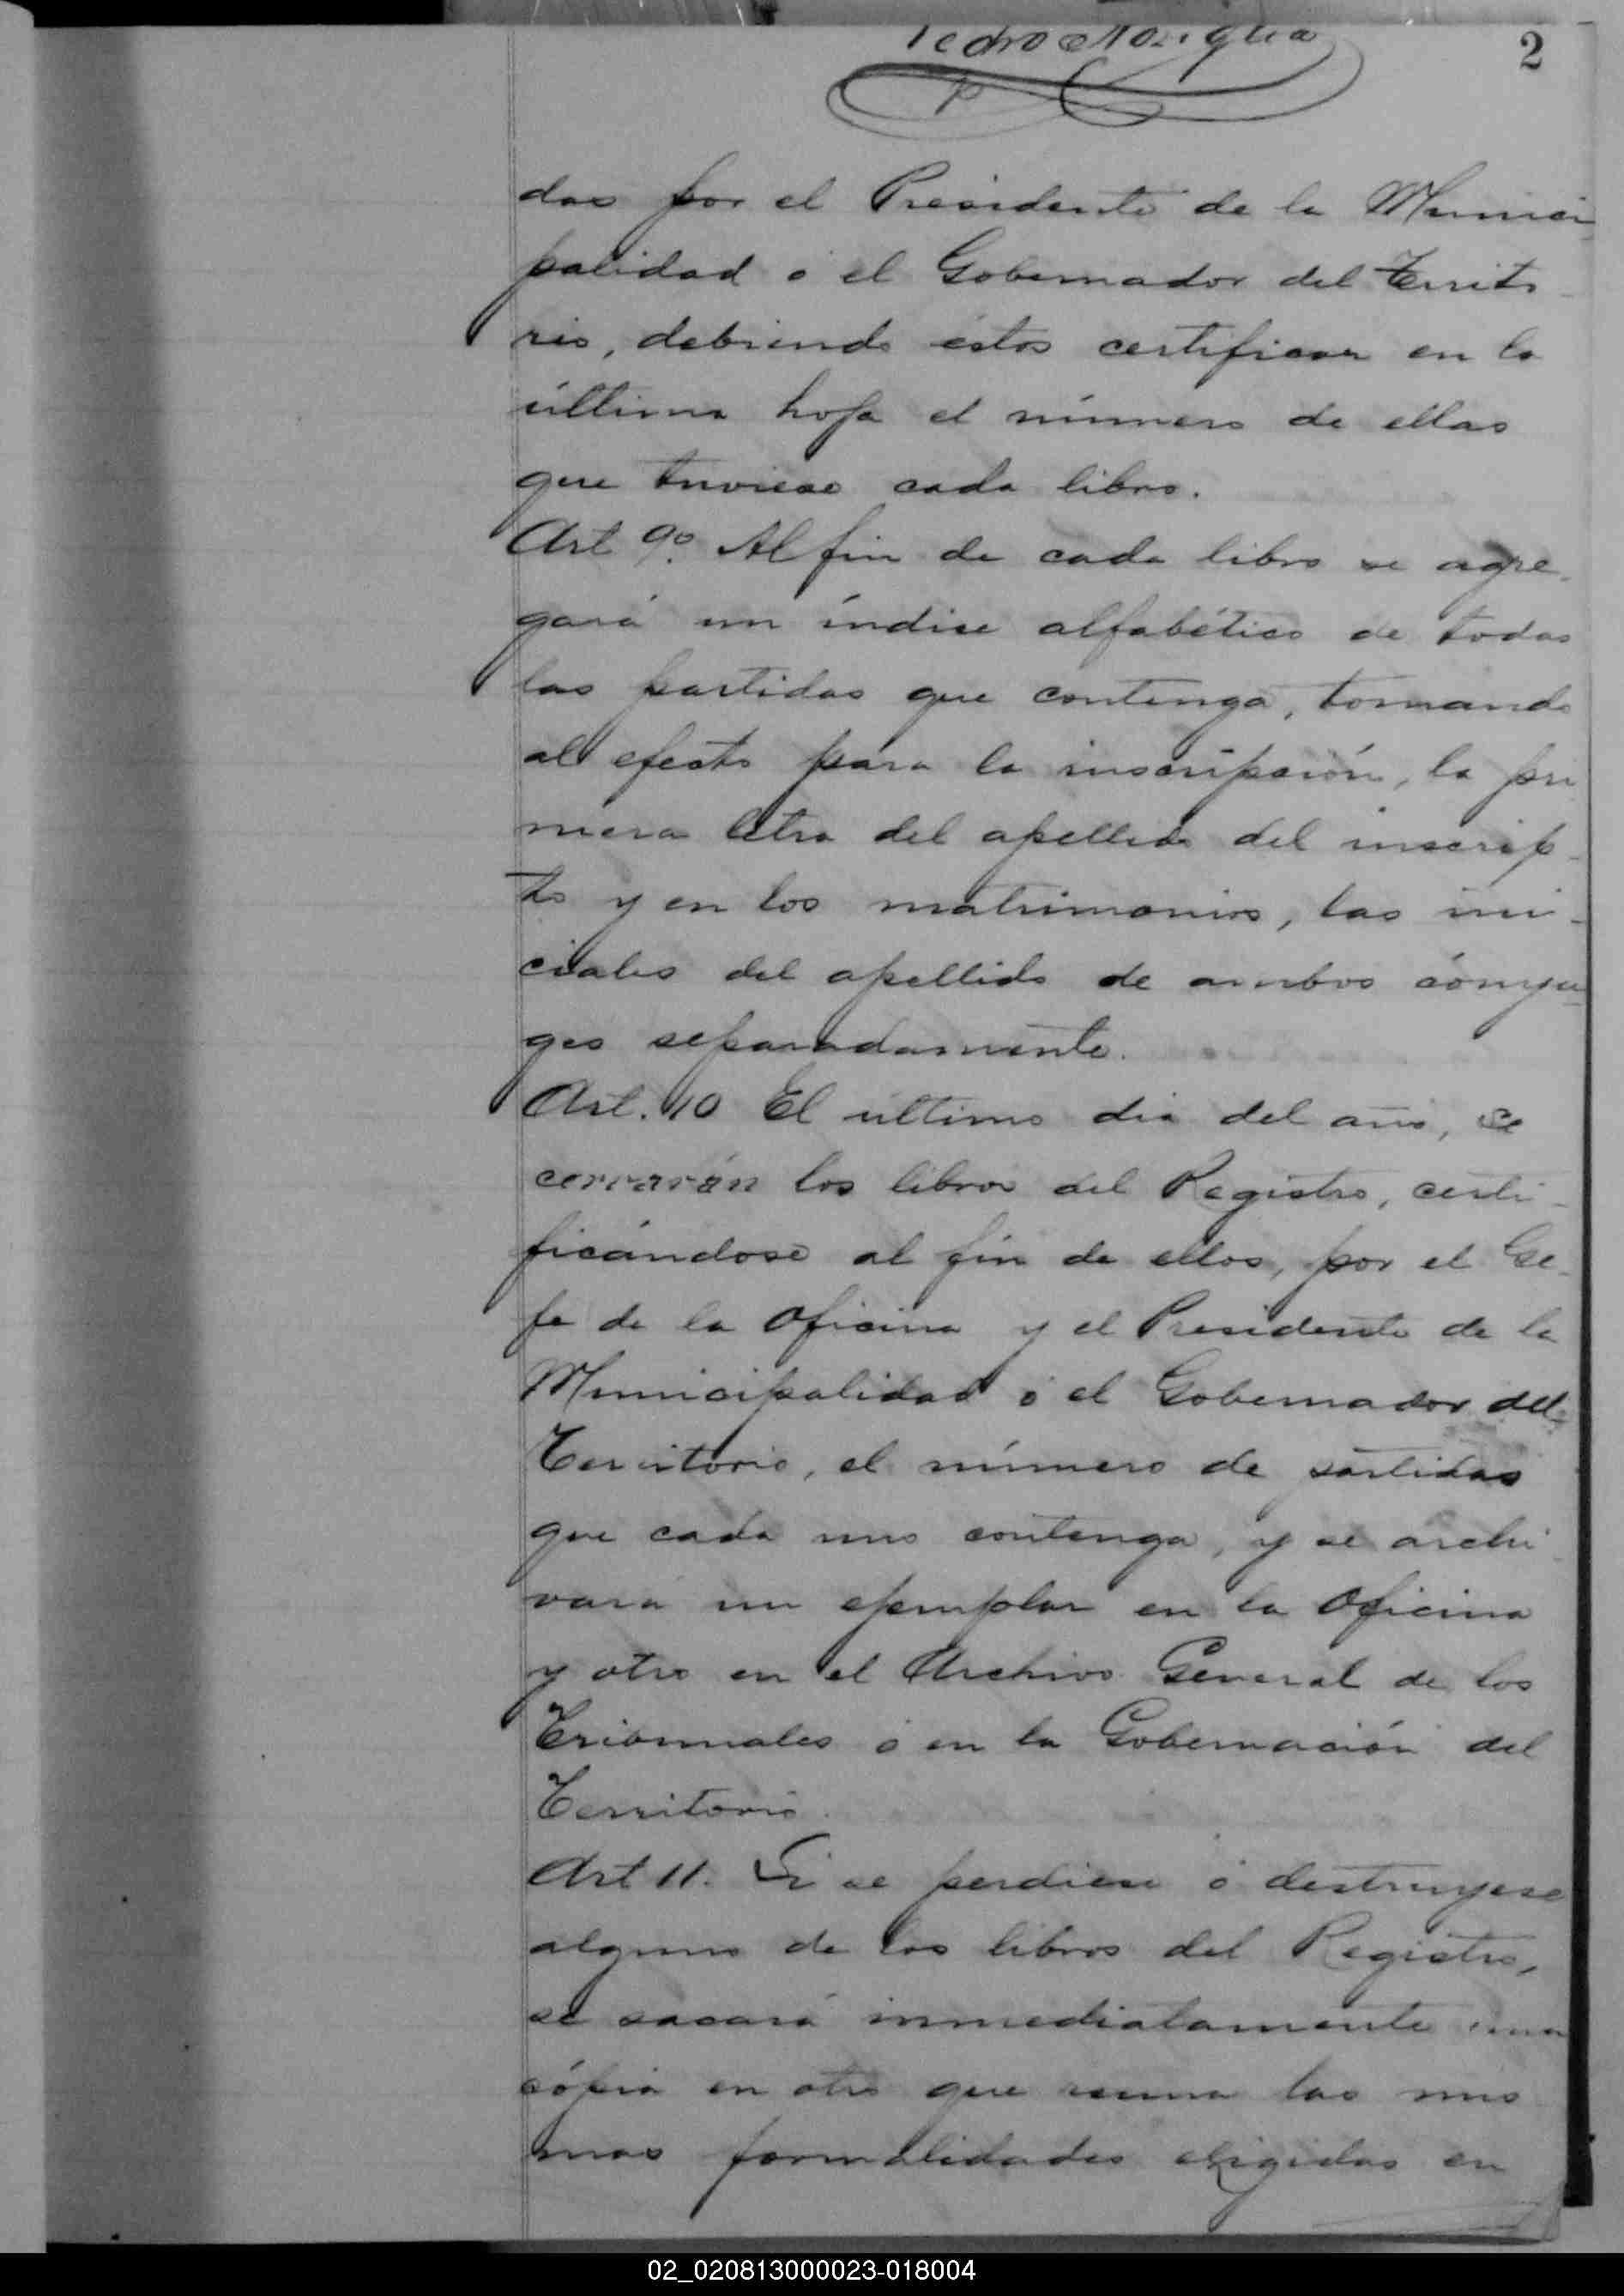 Pedro
2
das por el Presidente de la Munici
palidad ó el Gobernador del Territo
rio, debiendo éstos certificar en la
última hoja el número de ellas
que tuviese cada libro.
Art 9º. Al fin de cada libro se agre-
gará un índice alfabético de todas
las partidas que contenga, tomando
al efecto para la inscripción, la pri
mera letra del apellido del inscrip-
to y en los matrimonios, las ini-
ciales del apellido de ambos cónyu-
ges separadamente.
Art. 10 El último dia del año, se
cerrarán los libros del Registro, certi-
ficándose al fin de ellos, por el Ge-
fe de la Oficina y el Presidente de la
Municipalidad ó el Gobernador del
Territorio, el número de partidas
que cada uno contenga, y se archi
vará un ejemplar en la Oficina
y otro en el Archivo General de los
Tribunales ó en la Gobernación del
Territorio.
Art 11. Si se perdiese ó destruyese
alguno de los libros del Registro,
se sacará inmediatamente una
cópia en otro que reuna las mis
mas formalidades exigidas en
02_020813000023-018004